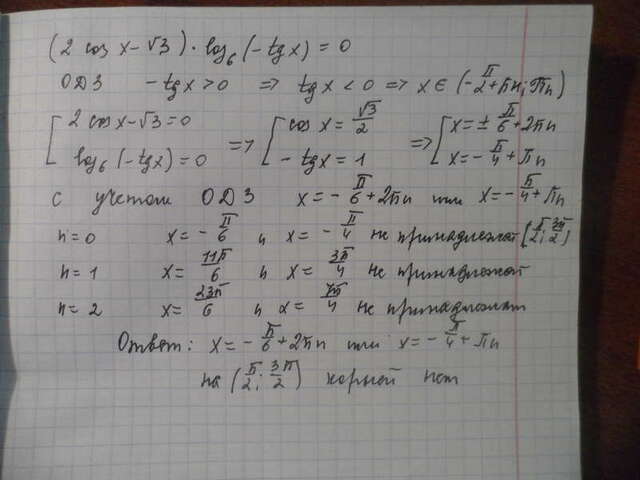 (2 cos x - √3) · log₆(-tgx) = 0
ОДЗ -tgx > 0 => tgx < 0 => x ∈ (-π/2 + πn; πn)
[ 2 cos x - √3 = 0 => [ cos x = √3/2 => [ x = ± π/6 + 2πn
log₆(-tgx) = 0 - tgx = 1 x = - π/4 + πn
с учетом ОДЗ x = - π/6 + 2πn или x = - π/4 + πn
n = 0 x = - π/6 и x = - π/4 не принадлежат [π/2; 3π/2)
n = 1 x = 11π/6 и x = 3π/4 не принадлежат
n = 2 x = 23π/6 и x = 7π/4 не принадлежат
Ответ: x = - π/6 + 2πn или x = - π/4 + πn
на (π/2; 3π/2) корней нет